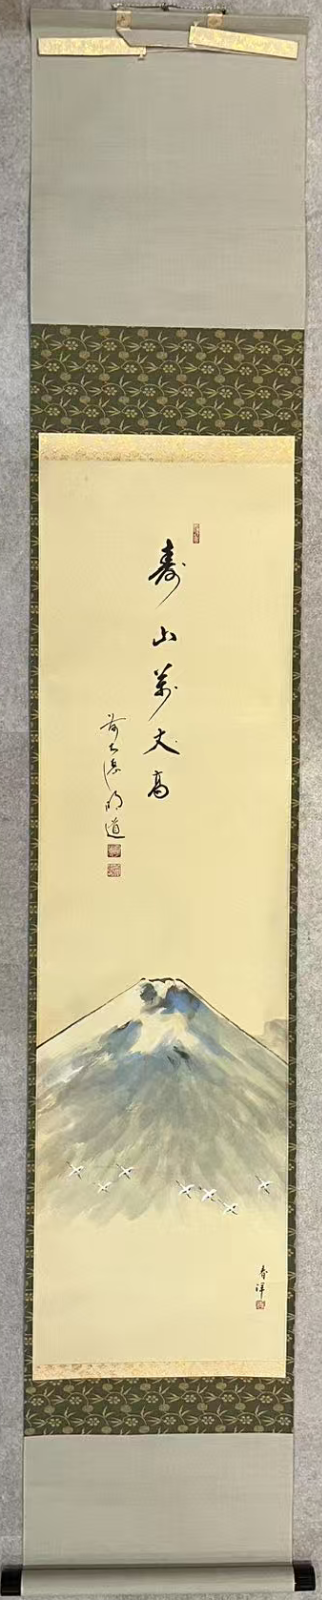 寿山萬丈高
前大徳明道